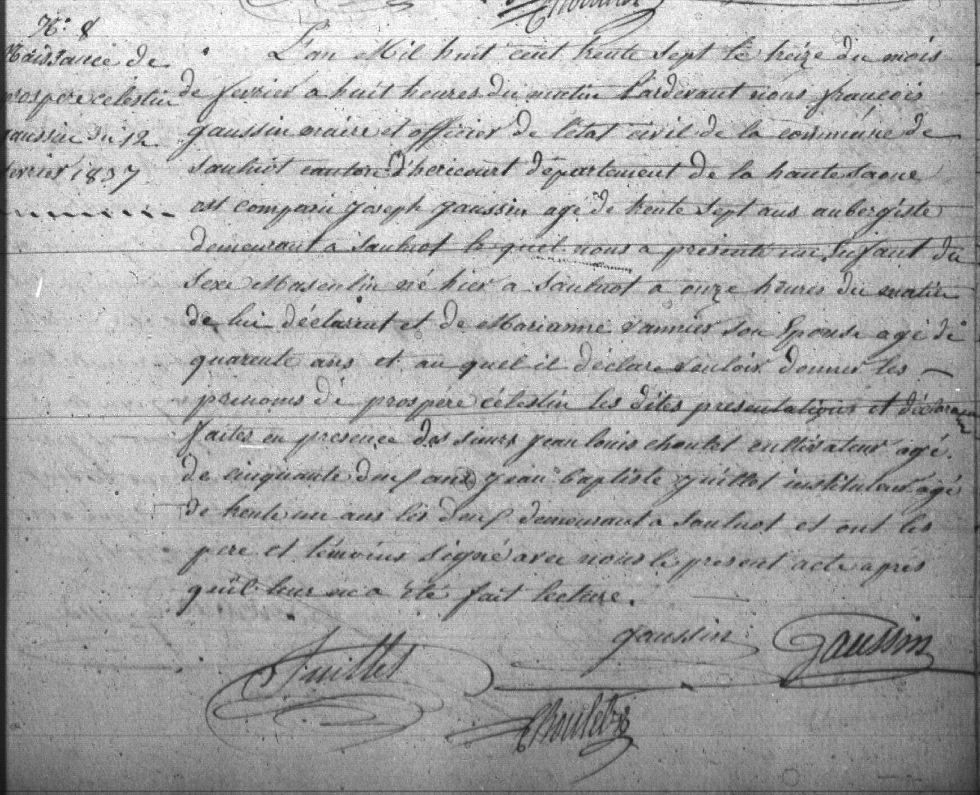 N.° 8
Naissance de
prospere célestin
gaussin du 12
fevrier 1837
L'an Mil huit cent trente sept le treize du mois
de fevrier a huit heures du matin Pardevant nous francois
gaussin maire et officier de l'etat civil de la commune de
Saulnot canton d'hericourt département de la haute Saone
est comparu joseph gaussin agé de trente Sept ans aubergiste
demeurant a Saulnot le quel nous a présenté un Enfant du
Sexe Masculin né hier a Saulnot a onze heures du matin
de lui déclarent et de Marianne vannier son Epouse agé de
quarente ans et au quel il déclare vouloir donner les
prenoms de prospere célestin les dites presentations et déclaration
faites en presence des sieurs jean louis choulet cultivateur agé
de cinquante deuf ans jean baptiste juillet instituteur agé
de trente un ans les deuf demeurant a Saulnot et ont les
pere et témoins Signé avec nous le present acte apres
qu'il leur en a été fait lecture.
gaussin Gaussin
Juillet
Choulet